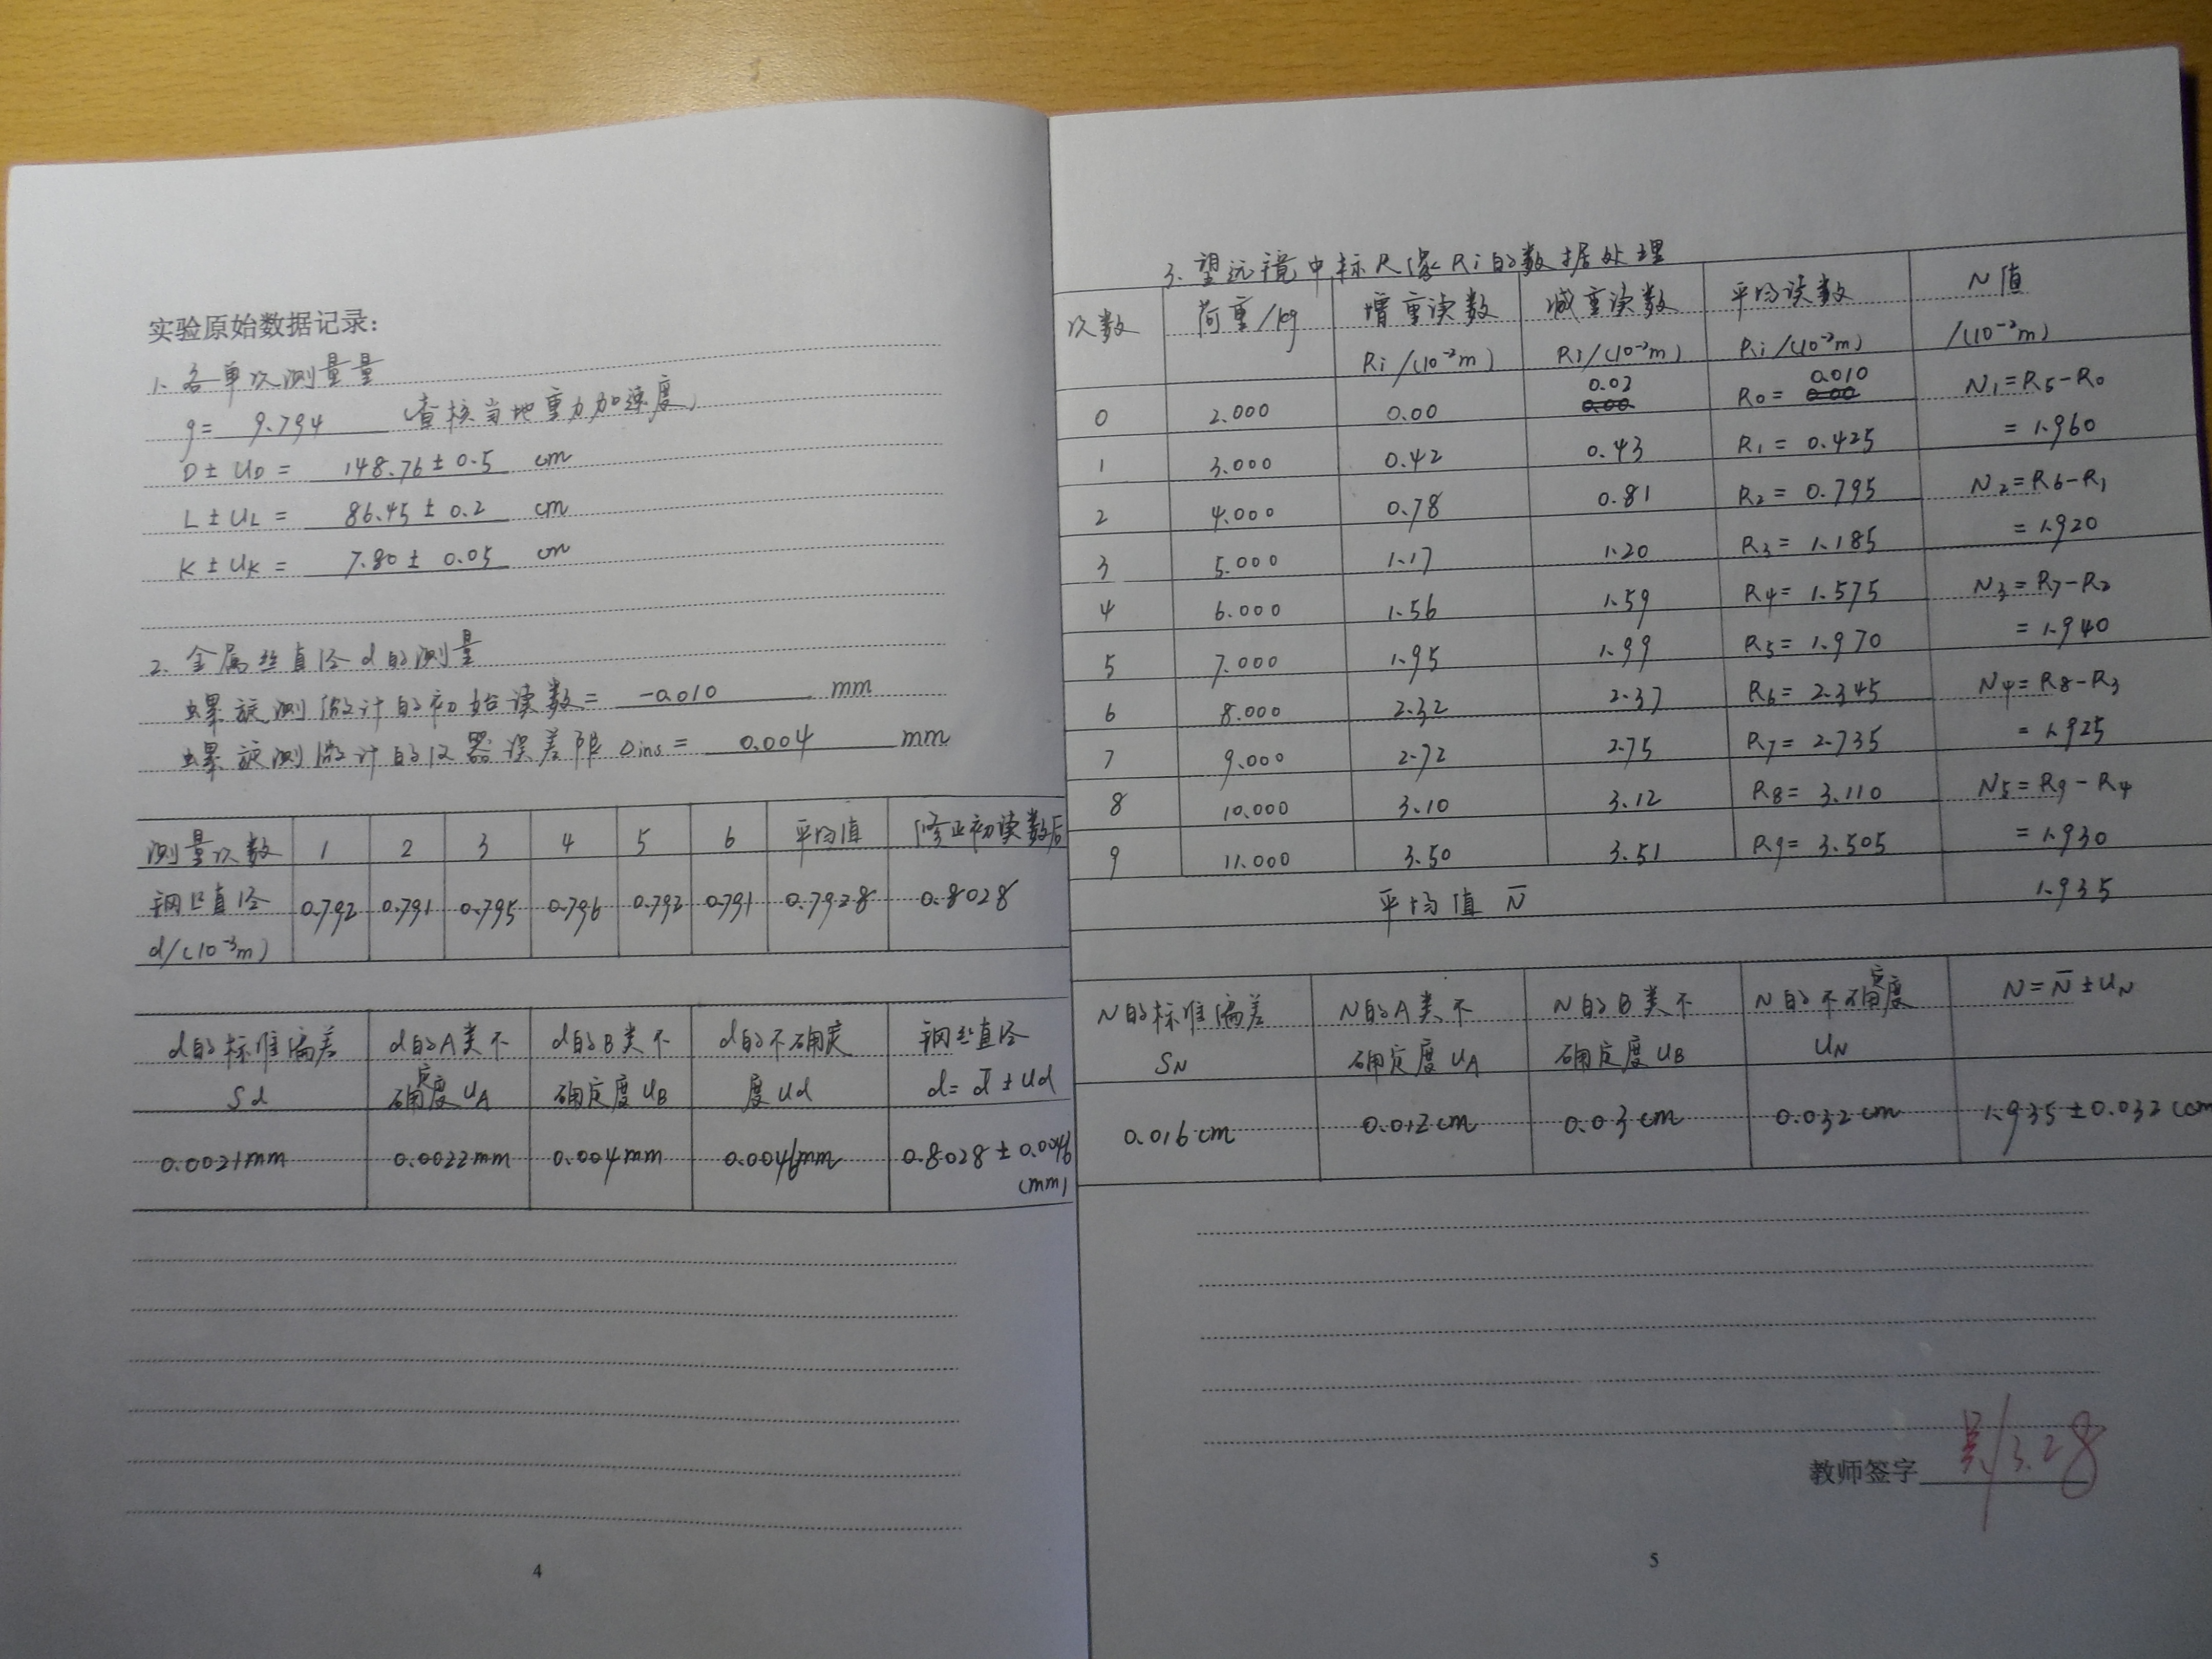 实验原始数据记录:
1. 各单次测量量
g= 9.794 (查核当地重力加速度)
D±UD = 148.76±0.5 cm
L±UL = 86.45±0.2 cm
K±UK = 7.80±0.05 cm
2. 金属丝直径d的测量
螺旋测微计的初始读数= -0.010 mm
螺旋测微计的仪器误差限 Δins = 0.004 mm
测量次数 1 2 3 4 5 6 平均值 修正初读数后
钢丝直径 d/(10⁻³m) 0.792 0.791 0.795 0.796 0.792 0.791 0.7928 0.8028
d的标准偏差 Sd d的A类不确定度UA d的B类不确定度UB d的不确定度Ud 钢丝直径 d=d̄±Ud
0.0021mm 0.0022mm 0.004mm 0.0046mm 0.8028±0.0046 (mm)
4
3. 望远镜中标尺像Ri的数据处理
次数 荷重/kg 增重读数 Ri/(10⁻²m) 减重读数 Ri/(10⁻²m) 平均读数 Ri/(10⁻²m) N值 /(10⁻²m)
0 2.000 0.00 0.02 R0= 0.010 N1=R5-R0
1 3.000 0.42 0.43 R1= 0.425 = 1.960
2 4.000 0.78 0.81 R2= 0.795 N2=R6-R1
3 5.000 1.17 1.20 R3= 1.185 = 1.920
4 6.000 1.56 1.59 R4= 1.575 N3=R7-R2
5 7.000 1.95 1.99 R5= 1.970 = 1.940
6 8.000 2.32 2.37 R6= 2.345 N4=R8-R3
7 9.000 2.72 2.75 R7= 2.735 = 1.925
8 10.000 3.10 3.12 R8= 3.110 N5=R9-R4
9 11.000 3.50 3.51 R9= 3.505 = 1.930
平均值 N̄ 1.935
N的标准偏差 SN N的A类不确定度UA N的B类不确定度UB N的不确定度 UN N=N̄±UN
0.016cm 0.012cm 0.03cm 0.032cm 1.935±0.032 (cm
教师签字 3.28
5